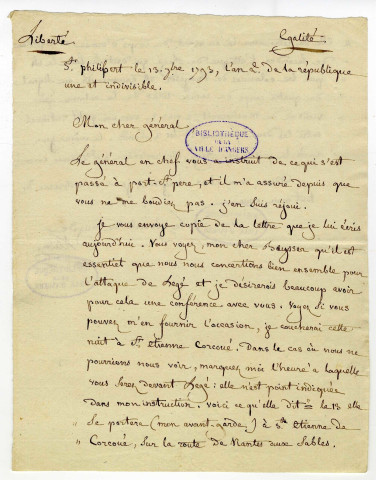 Liberté Egalité
St. philibert le 13. 7bre 1793, l'an 2e. de la république
une et indivisible.
Mon cher général.
BIBLIOTHÈQUE
DE LA
VILLE D'ANGERS
Le général en chef vous a instruit de ce qui s'est
passé à port-St pere, et il m'a assuré depuis que
vous ne me boudiez pas. j'en suis réjoui.
je vous envoye copie de la lettre que je lui écris
aujourd'hui. Vous voyez, mon cher Beysser qu'il est
essentiel que nous nous concertions bien ensemble pour
l'attaque de Legé et je désirerois beaucoup avoir
pour cela une conférence avec vous. Voyez si vous
pouvez m'en fournir l'occasion, je coucherai cette
nuit à St. etienne Corcoué, dans le cas où nous ne
pourrions nous voir, marquez moi l'heure à laquelle
vous serez devant Legé: elle n'est point indiquée
dans mon instruction. voici ce qu'elle dit = le 13 elle
" se portera (mon avant-garde,) à St. Etienne de
" Corcoué, sur la route de Nantes aux Sables.